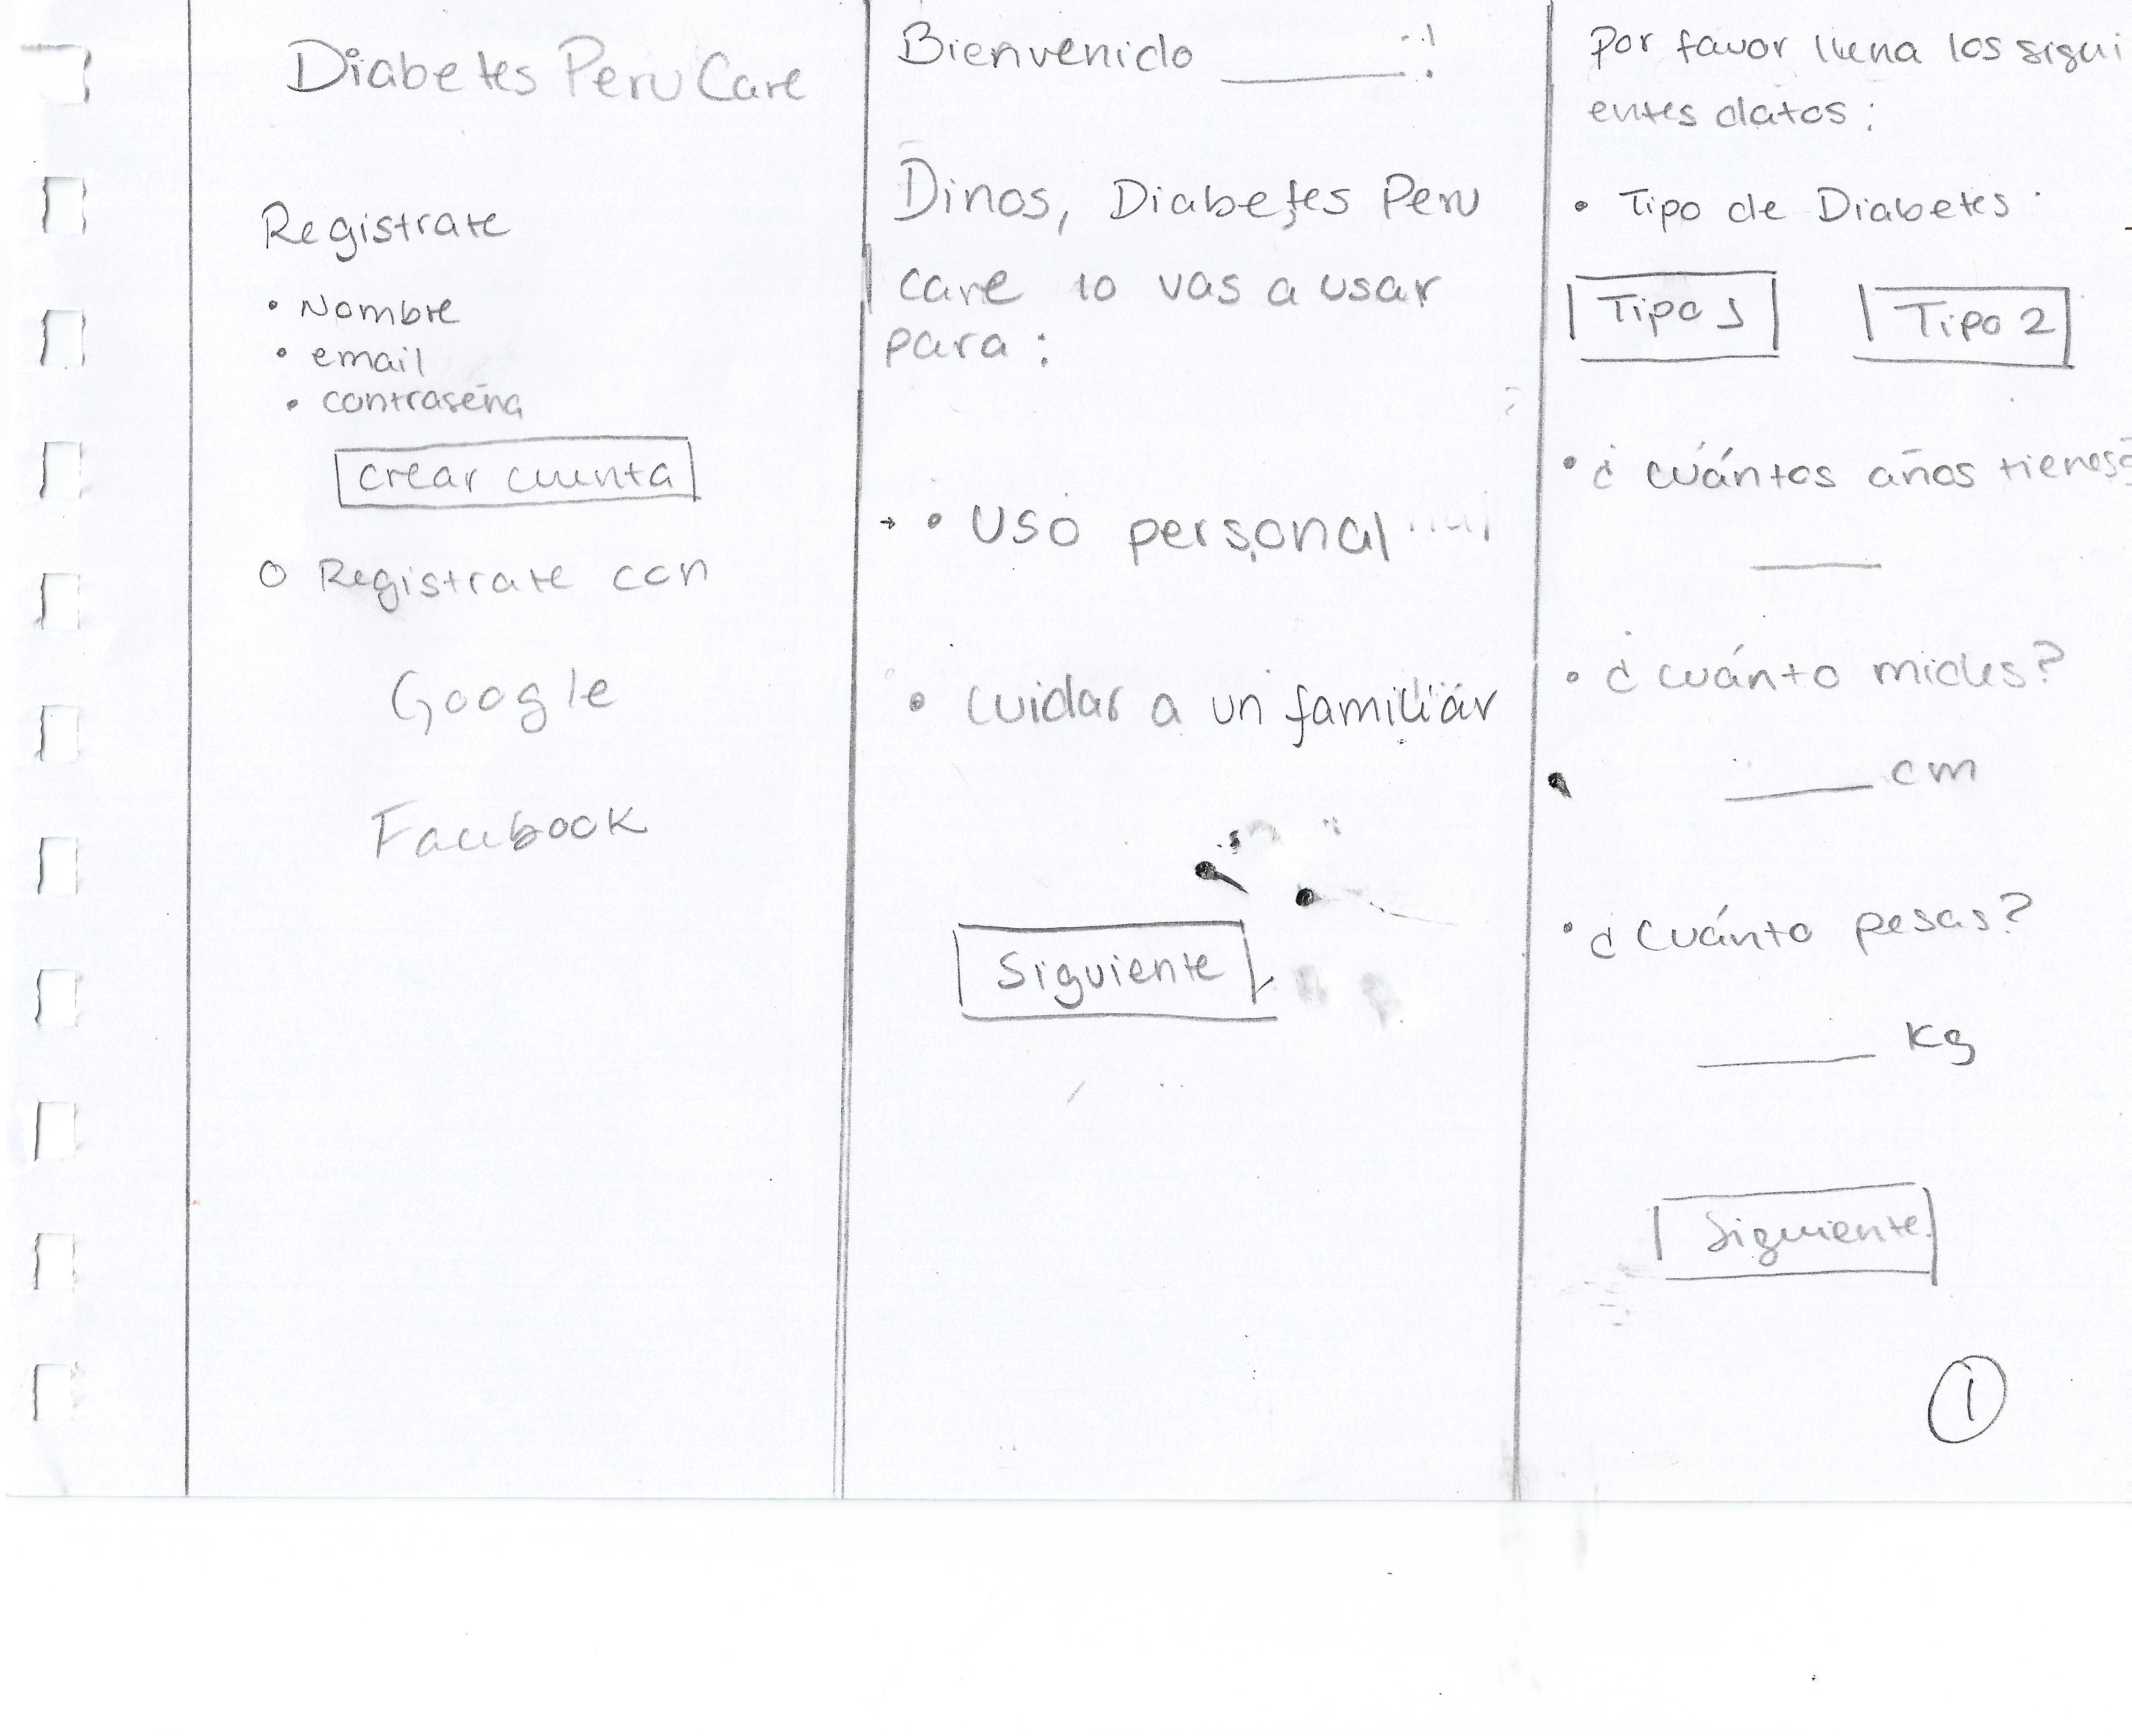 Diabetes Peru Care
Registrate
• Nombre
• email
• contraseña
crear cuenta
O Registrate con
Google
Facebook
Bienvenido ______!
Dinos, Diabetes Peru
care lo vas a usar
para:
→ • Uso personal
• Cuidar a un familiar
Siguiente
Por favor llena los sigui
entes datos:
• Tipo de Diabetes
Tipo 1 Tipo 2
• ¿cuántos años tienes?
______
• ¿cuánto mides?
______ cm
• ¿Cuánto pesas?
______ Kg
Siguiente
1